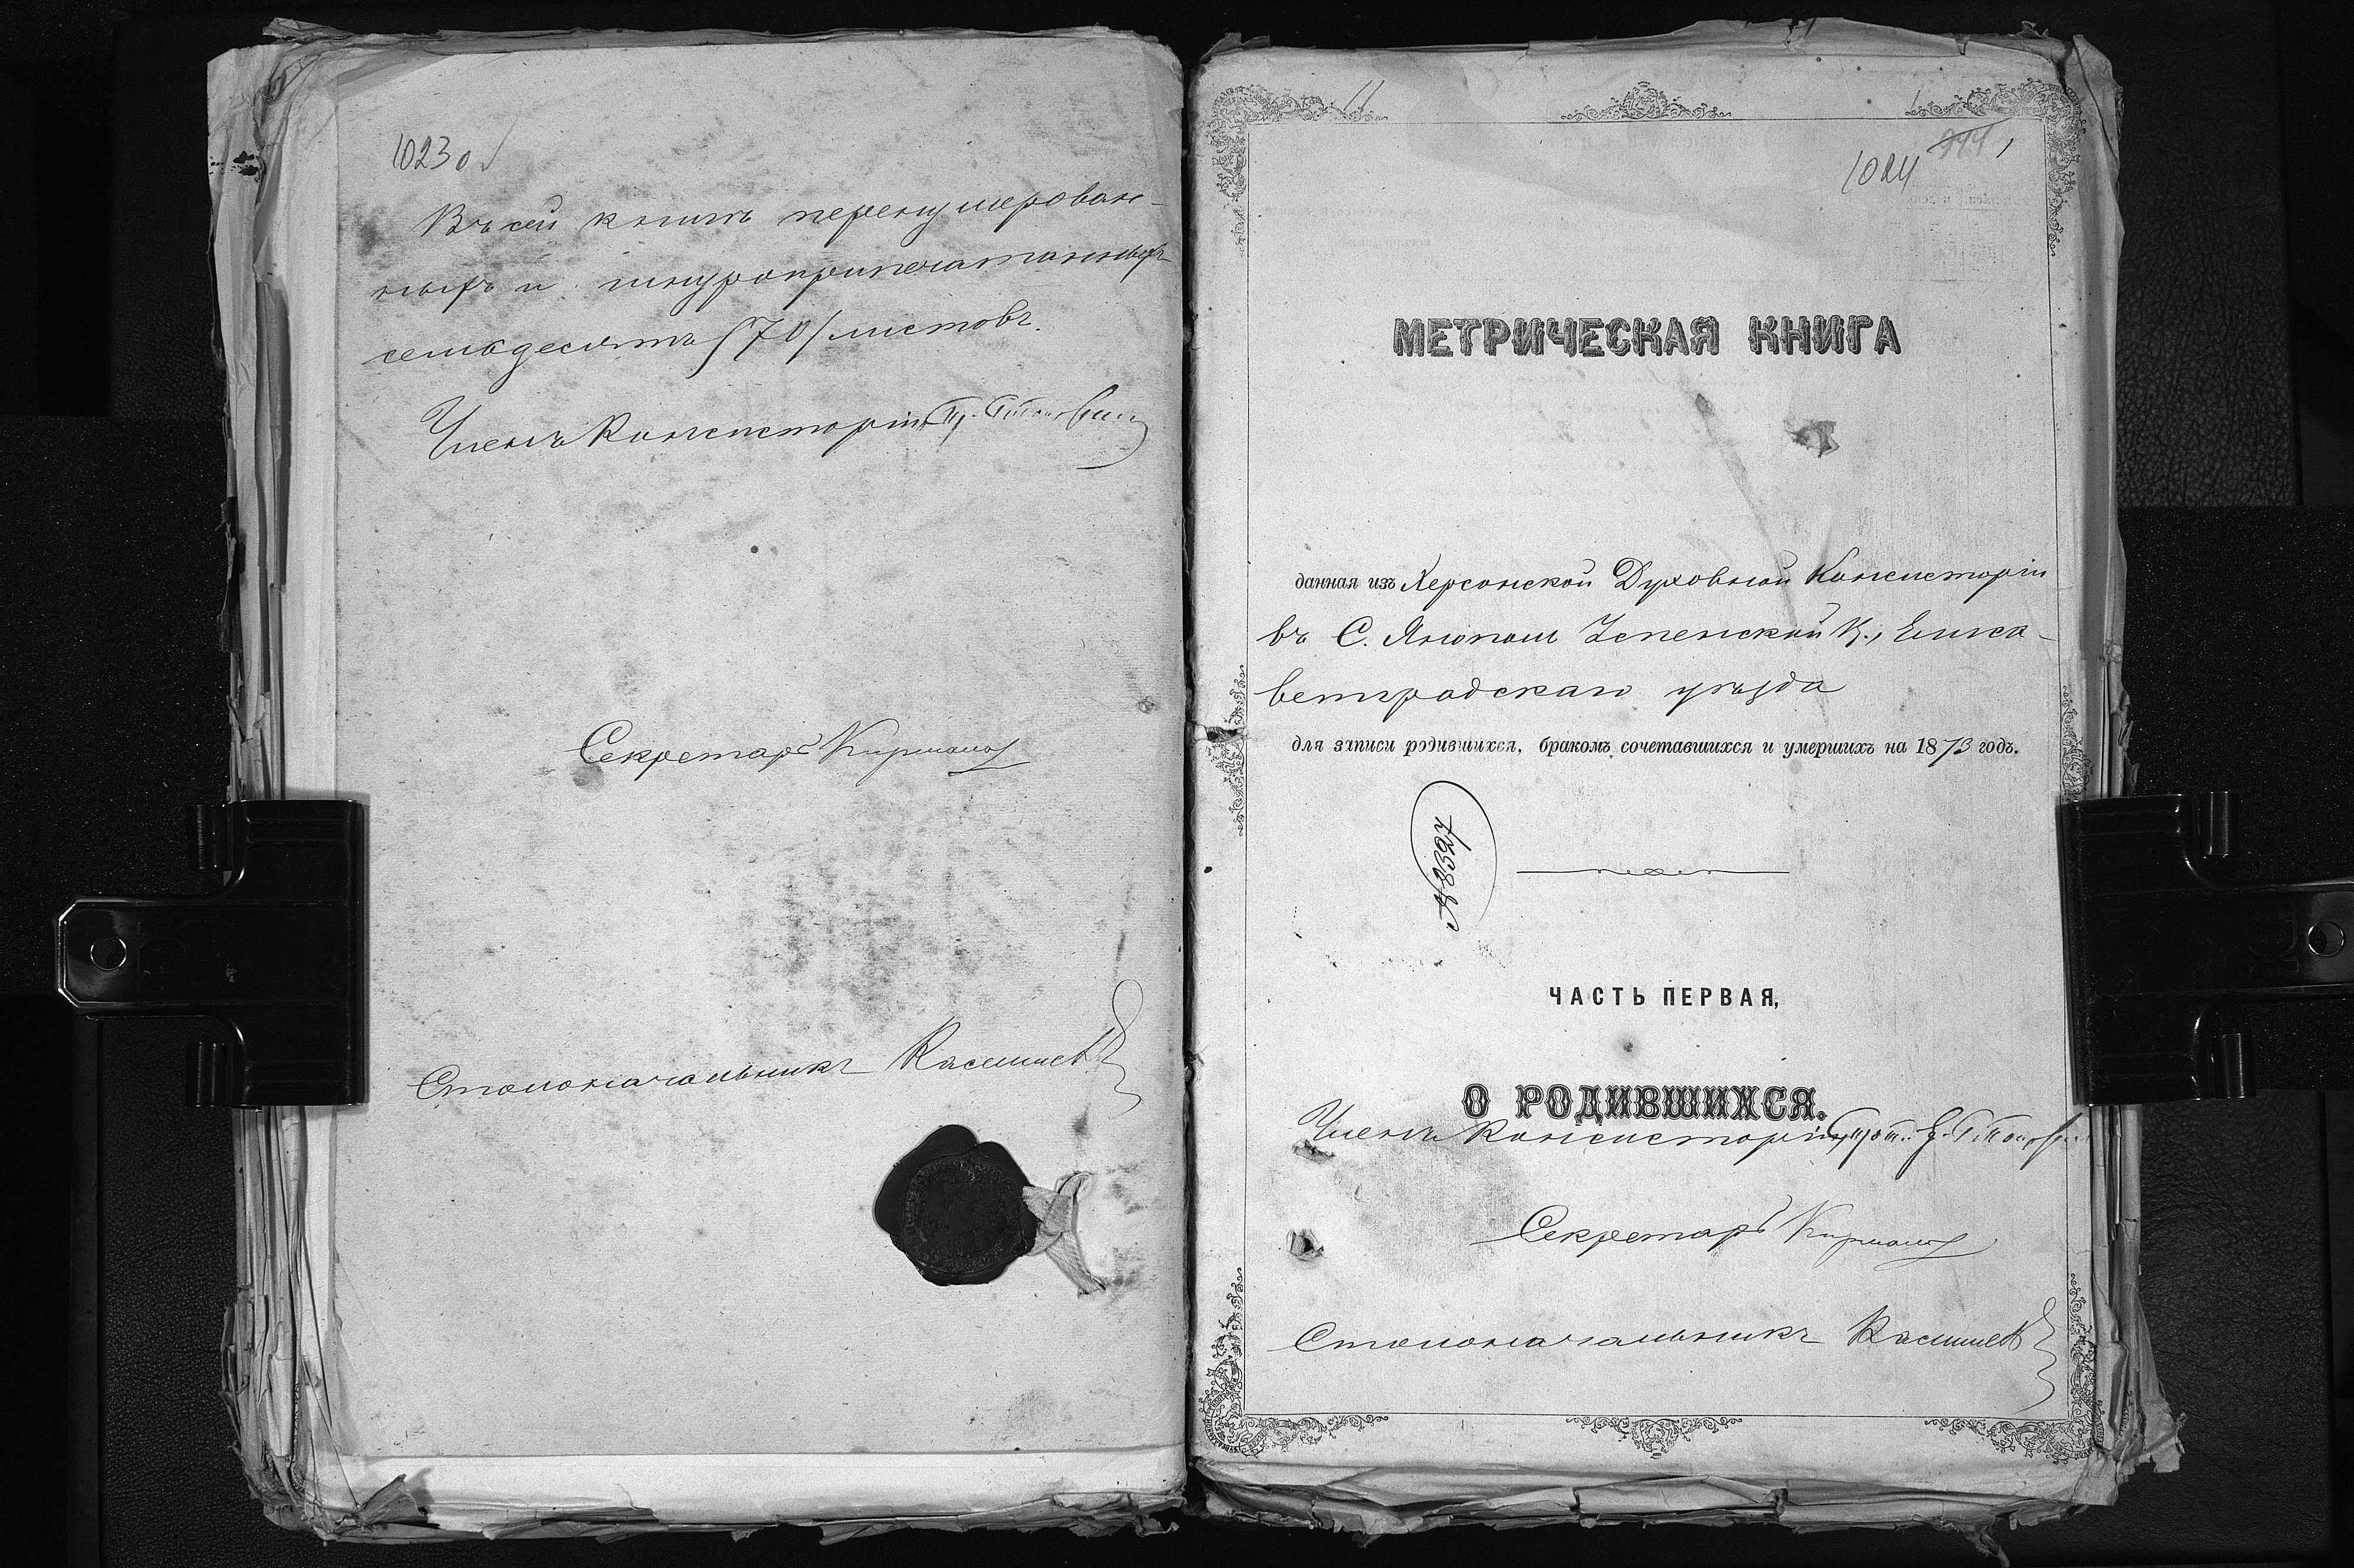 1023об
Въ сей книгѣ перенумерован-
ныхъ и шнуроприпечатанныхъ
семьдесятъ /70/ листовъ.
Членъ Консисторіи
Секретарь
Столоначальникъ
11
1
1024
МЕТРИЧЕСКАЯ КНИГА
данная изъ Херсонской Духовной Консисторіи
въ С. Янополь Успенской Ц., Елиса-
ветградскаго уѣзда
для записи родившихся, бракомъ сочетавшихся и умершихъ на 1873 годъ.
№ 8327
ЧАСТЬ ПЕРВАЯ,
О РОДИВШИХСЯ.
Членъ Консисторіи
Секретарь
Столоначальникъ